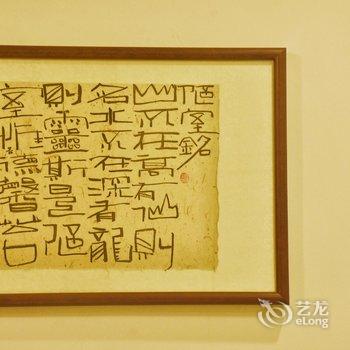 陋室銘
山不在高有仙則
名水不在深有龍
則靈斯是陋
室德馨苔
艺龙
eLong.com